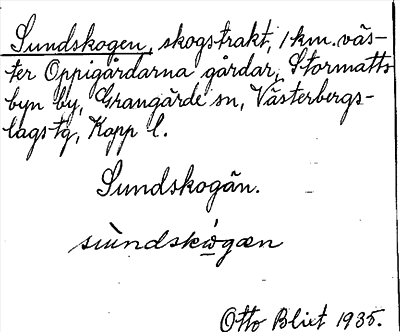 Sundskogen, skogstrakt, 1 km. väs-
ter Oppigårdarna gårdar, Stormatts
byn by, Grangärde sn, Västerbergs-
lags tg, Kopp l.
Sundskogän.
Otto Blixt 1935.